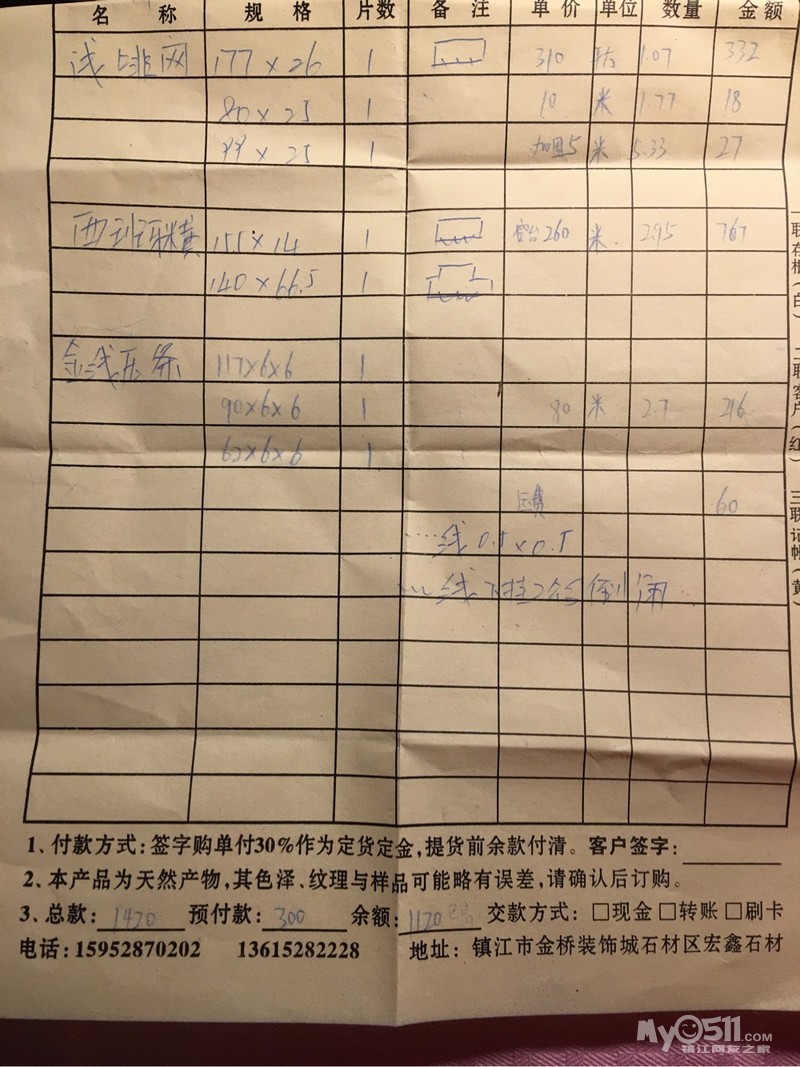 名称 规格 片数 备注 单价 单位 数量 金额
浅啡网 177×26 1 310 1.07 332
80×25 1 10 米 1.77 18
99×25 1 加固5 米 5.33 27
西班牙米黄 155×14 1 窗台260 米 2.95 767
140×66.5 1
金线压条 117×6×6 1
90×6×6 1 80 米 2.7 216
63×6×6 1
运费 60
线0.5×0.5
线
一联存根(白) 二联客户(红) 三联记帐(黄)
1、付款方式:签字购单付30%作为定货定金,提货前余款付清。客户签字:
2、本产品为天然产物,其色泽、纹理与样品可能略有误差,请确认后订购。
3、总款:1420 预付款:300 余额:1120 交款方式:□现金□转账□刷卡
电话:15952870202 13615282228 地址:镇江市金桥装饰城石材区宏鑫石材
My0511.COM
镇江网友之家